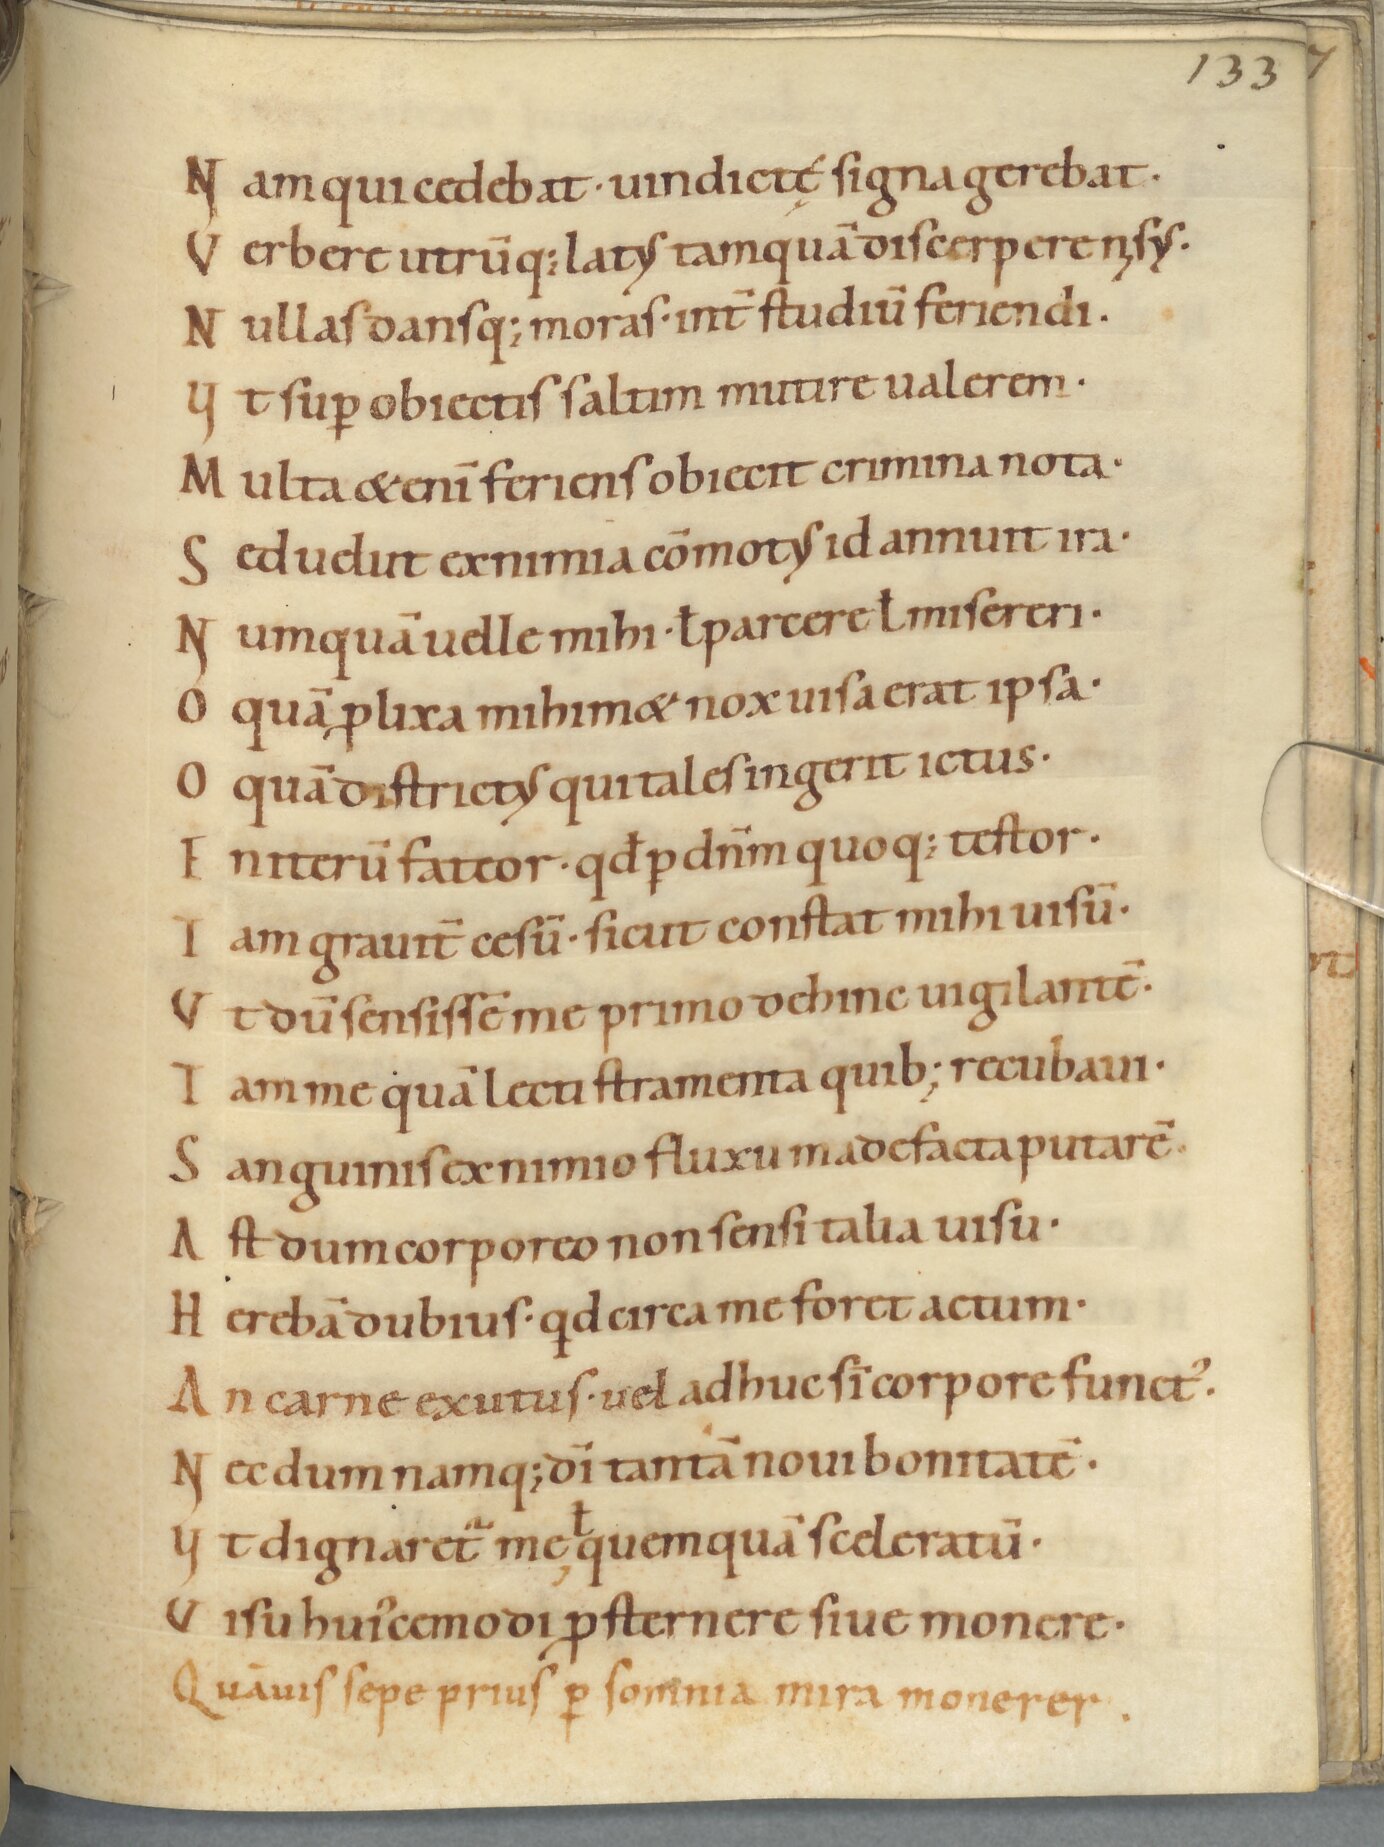 133
Nam qui cedebat · uindictę signa gerebat ·
Verbere utrūq; latus tamquā discerpere nisus ·
Nullas dansq; moras · int̄ studiū feriendi ·
Vt sup̲ obiectis saltim mutire ualerem ·
Multa &enī feriens obiecit crimina nota ·
Sed uelut ex nimia cōmotus id annuit ira ·
Numquā uelle mihi · ł parcere ł misereri ·
O quā ꝓlixa mihim& nox uisa erat ipsa ·
O quā districtus qui tales ingerit ictus ·
En iterū fateor · qđ ꝑ dn̄m quoq; testor ·
Iam grauit̄ cesū · sicut constat mihi uisū ·
Vt dū sensissē me primo dehinc uigilantē ·
Iam me quā lecti stramenta quib; recubaui ·
Sanguinis ex nimio fluxu madefacta putarē ·
Ast dum corporeo non sensi talia uisu ·
Herebā dubius · qđ circa me foret actum ·
An carne exutus · uel adhuc sī corpore funct᾿ ·
Necdum namq; dī tantā noui bonitatē ·
Vt dignaret̄ me ł quemquā sceleratū ·
Visu hui᾿cemodi ꝓsternere siue monere ·
Quāuis sepe prius ꝑ somnia mira monerer .